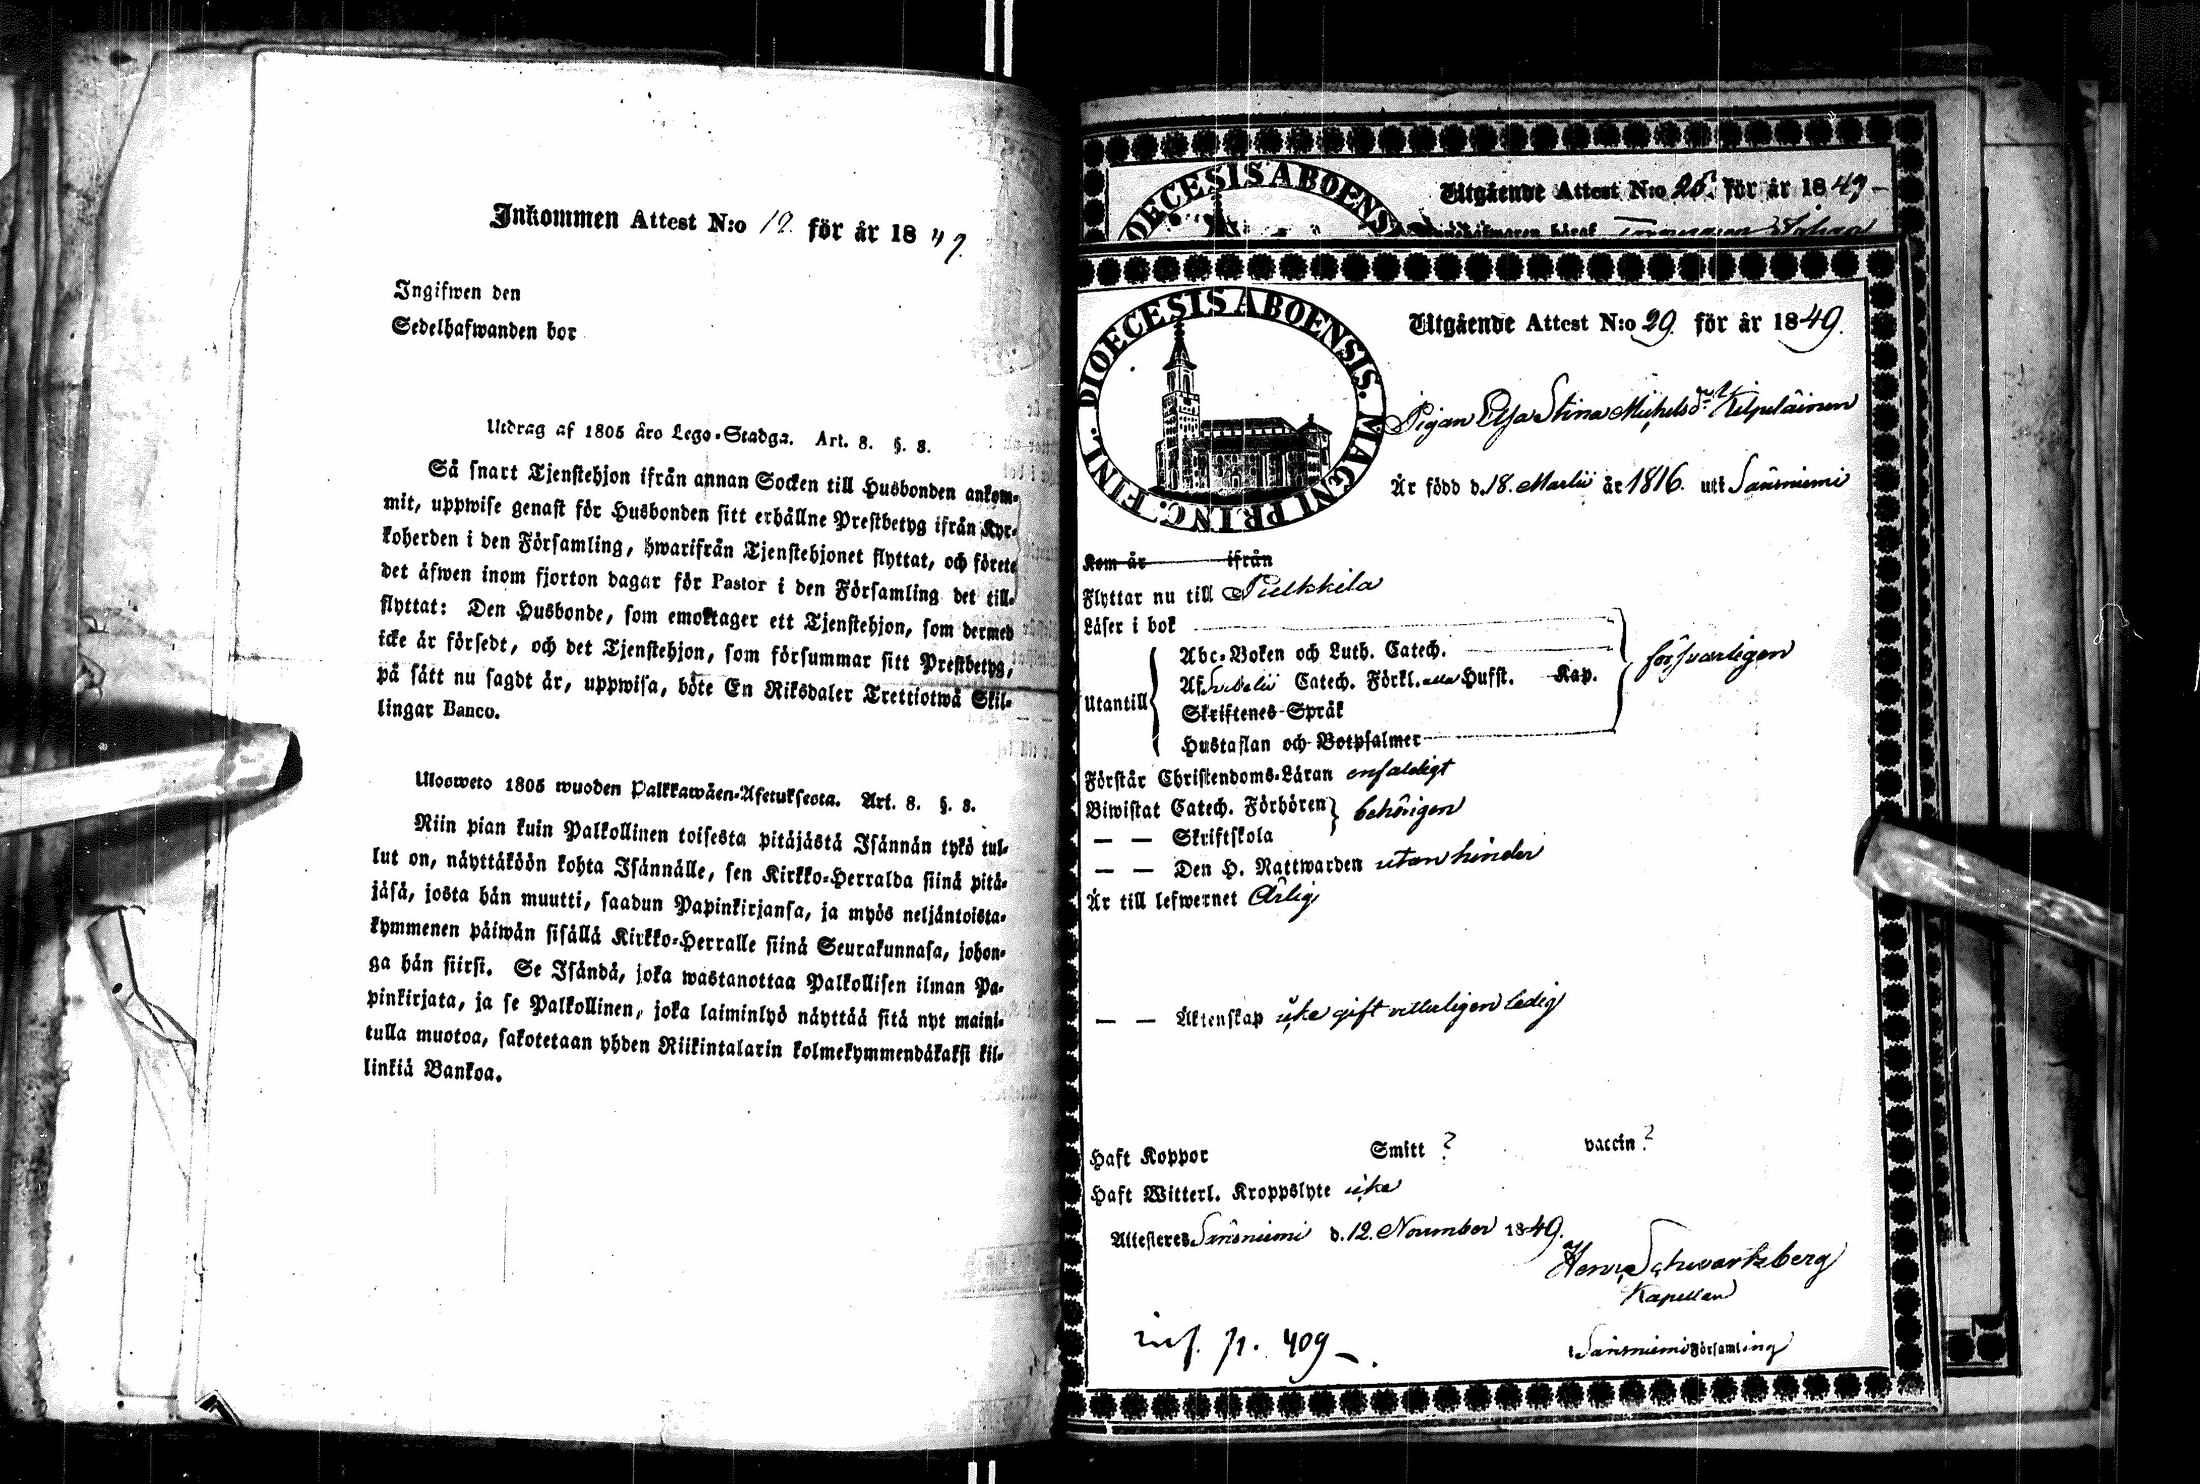 Inkommen Attest N:o 12. för år 1849.
Ingifwen den
Sedelhafwanden bor
Utdrag af 1805 åro Lego-Stadga. Art. 8. §. 8.
Så snart Tjenstehjon ifrån annan Socken till Husbonden ankom-
mit, uppwise genast för Husbonden sitt erhållne Prestbetyg ifrån Kyr-
koherden i den Församling, hwarifrån Tjenstehjonet flyttat, och förete
det äfwen inom fjorton dagar för Pastor i den Församling det till-
flyttat: Den Husbonde, som emottager ett Tjenstehjon, som dermed
icke är försedt, och det Tjenstehjon, som försummar sitt Prestbetyg,
på sätt nu sagdt är, uppwisa, böte En Riksdaler Trettiotwå Skil-
lingar Banco.
Ulosweto 1805 wuoden Palkkawäen-Asetuksesta. Art. 8. §. 8.
Niin pian kuin Palkollinen toisesta pitäjästä Isännän tykö tul-
lut on, näyttäköön kohta Isännälle, sen Kirkko-Herralda siinä pitä-
jäsä, josta hän muutti, saadun Papinkirjansa, ja myös neljäntoista-
kymmenen päiwän sisällä Kirkko-Herralle siinä Seurakunnasa, johon-
ga hän siirsi. Se Isändä, joka wastanottaa Palkollisen ilman Pa-
pinkirjata, ja se Palkollinen, joka laiminlyö näyttää sitä nyt maini-
tulla muotoa, sakotetaan yhden Riikintalarin kolmekymmendäkaksi kil-
linkiä Bankoa.
DIOECESIS ABOENSIS
Utgående Attest N:o 25. för år 1849
Johan
DIOECESIS ABOENSIS. MAGNI PRINC. FINL.
Utgående Attest N:o 29. för år 1849.
Pigan Elsa Stina Michelsdr Kilpeläinen
Är född d. 18. Martii år 1816. uti Sääminmi
Kom år ifrån
Flyttar nu till Pielkkila
Läser i bok
Abc-Boken och Luth. Catech.
Af Svebelii Catech. Förkl. eller Hufst. Kap. försvarligen
Utantill
Skriftenes-Språk
Hustaflan och Botpsalmer
Förstår Christendoms-Läran enfaldigt
Biwistat Catech. Förhören behörigen
— — Skriftskola
— — Den H. Nattwarden utan hinder
Är till lefwernet Ärlig
— — Äktenskap icke gift vetterligen ledig
Haft Koppor Smitt ? vaccin ?
Haft Witterl. Kroppslyte icke
Attesteres d. 12. November 1849.
Henr. Schwartzberg
Kapellan
Församling
inf. p. 409